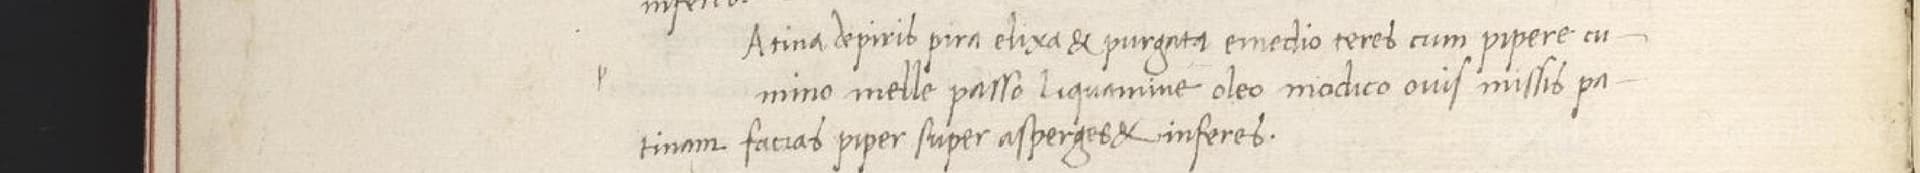 inferes.
p Atina de piris pira elixa & purgata e medio teres cum pipere cu-
mino melle passo liquamine oleo modico ovis missis pa-
tinam facias piper super asperges & inferes.